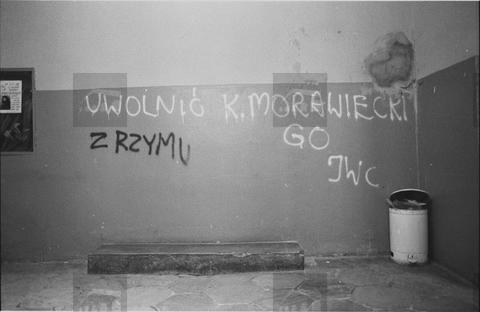 UWOLNIĆ K. MORAWIECKI
GO
Z RZYMU
JWC